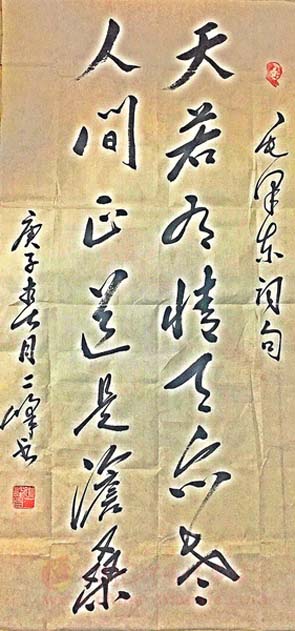 毛泽东词句
天若有情天亦老
人間正道是滄桑
庚子 月二峰书